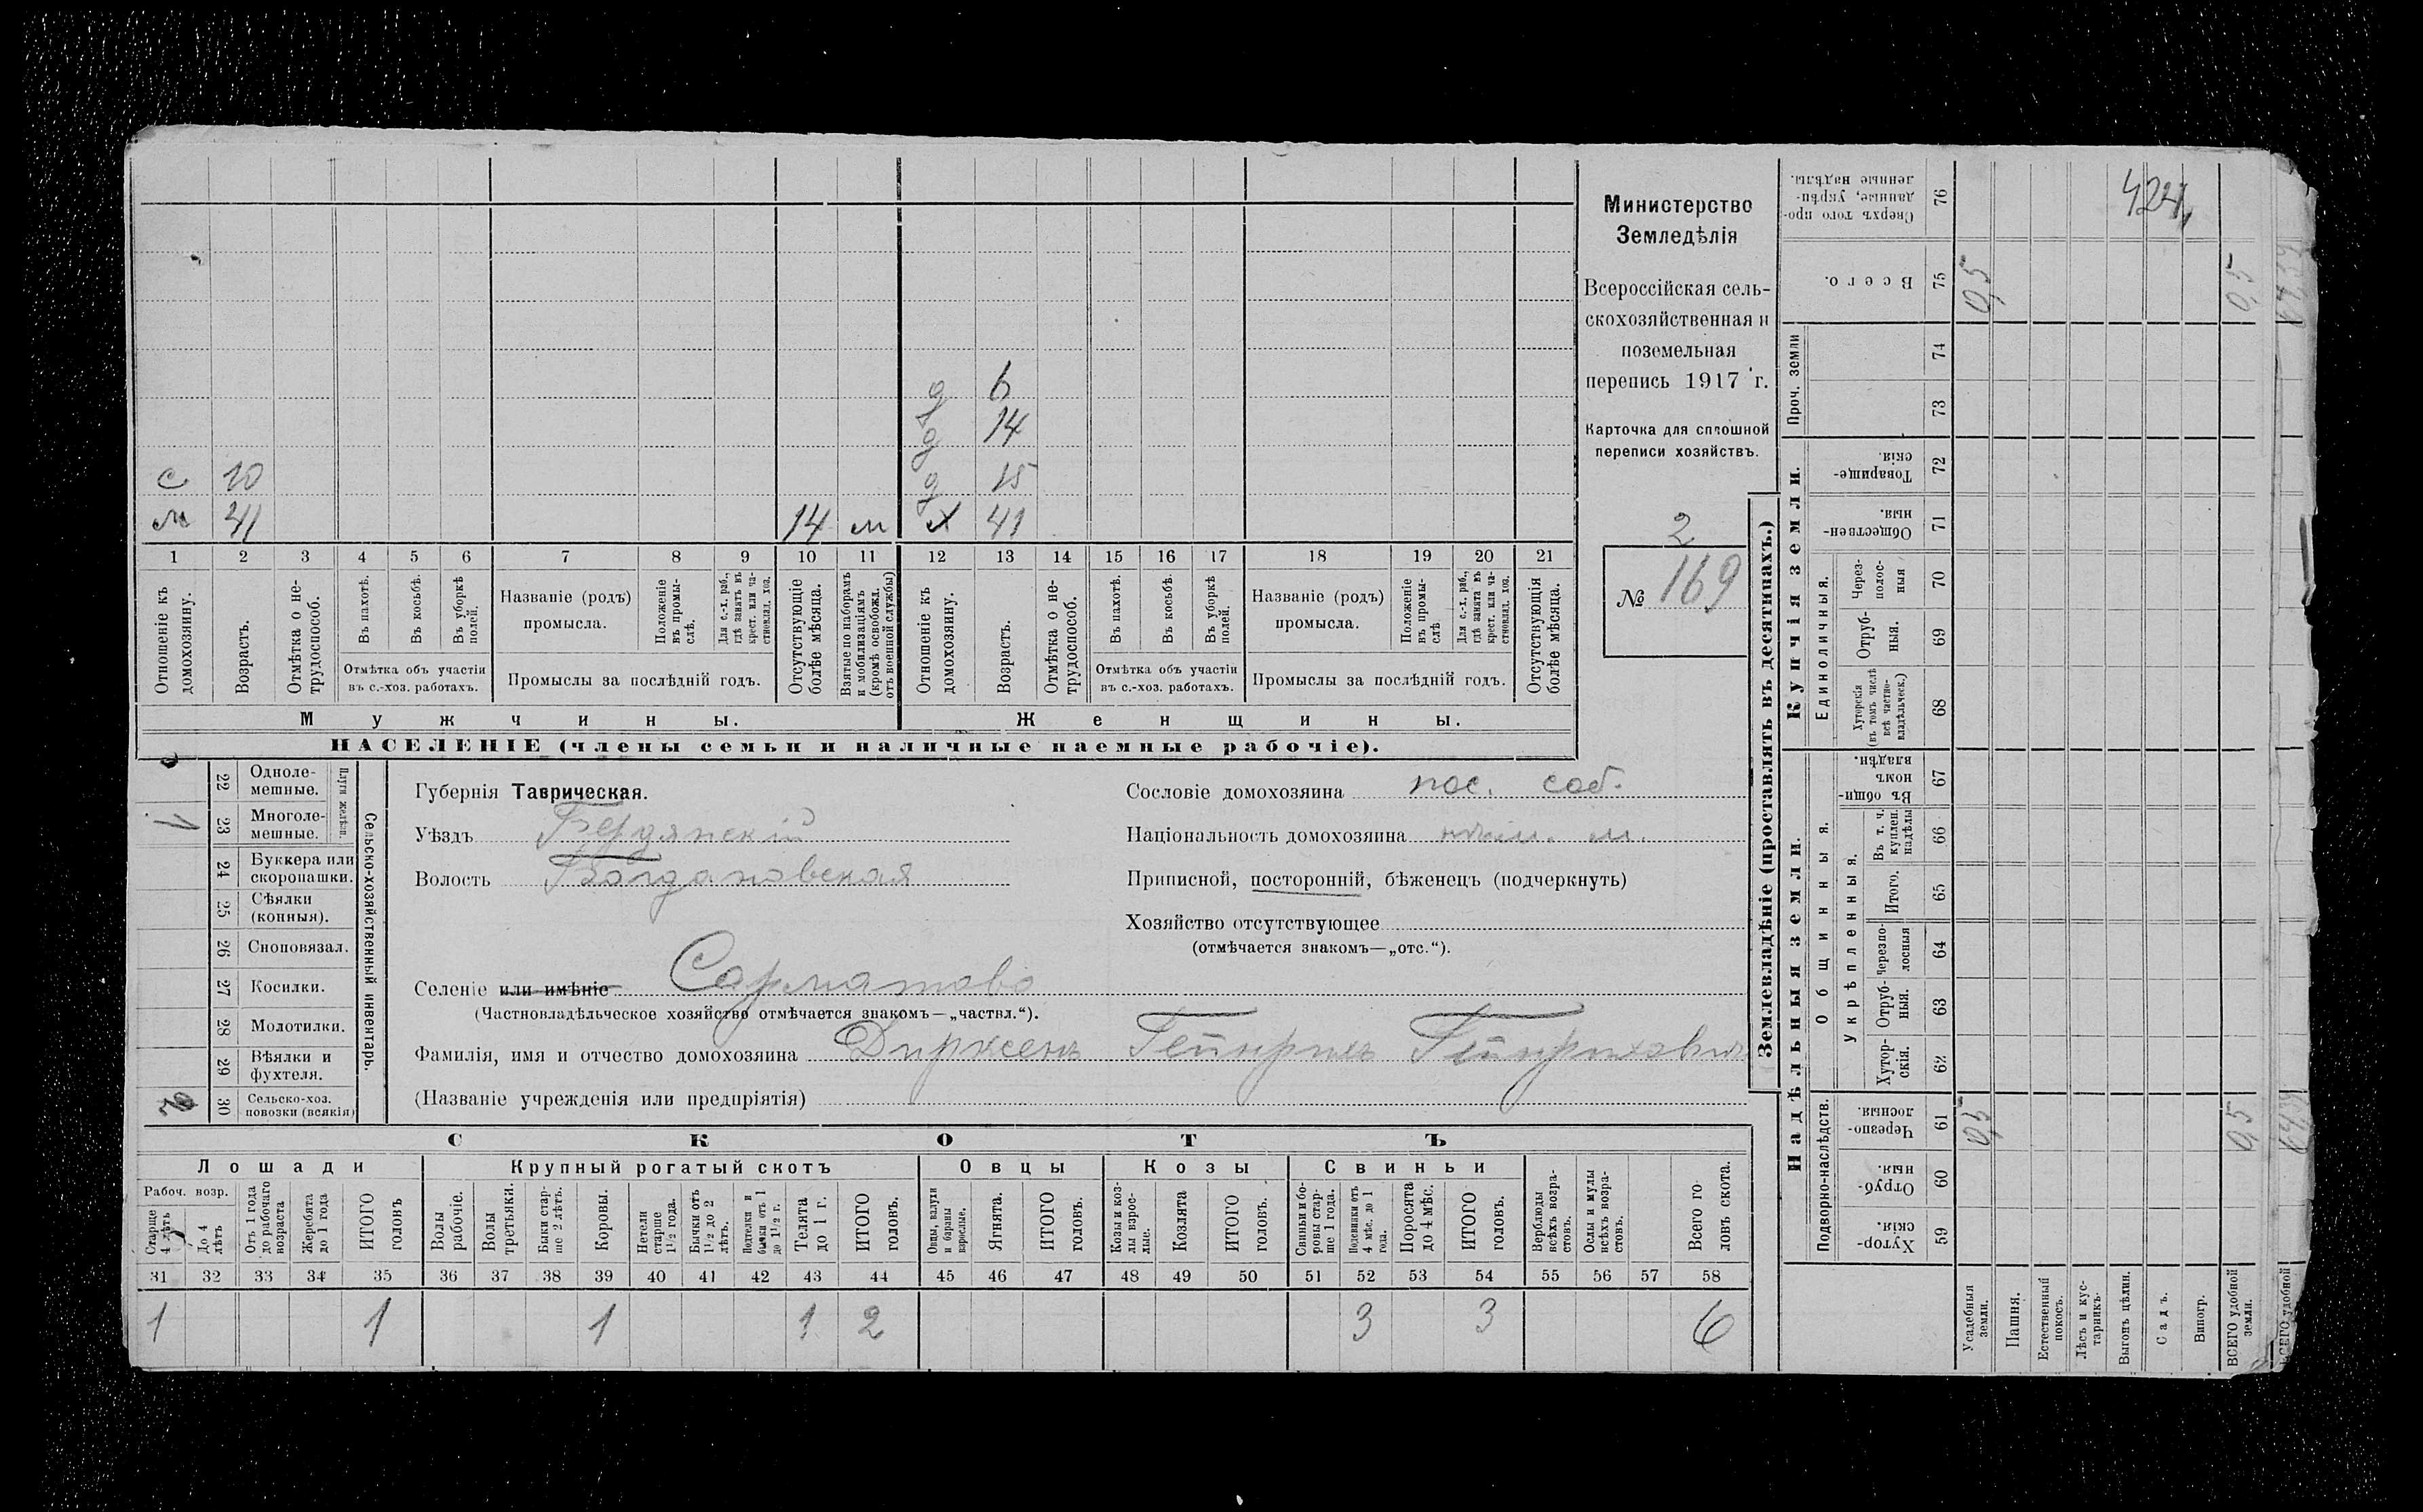 с 10
м 41 14 м
д 6
д 14
д 15
х 41
1 2 3 4 5 6 7 8 9 10 11 12 13 14 15 16 17 18 19 20 21
Отношеніе къ домохозяину.
Возрастъ.
Отмѣтка о не-
трудоспособ.
Въ пахотѣ.
Въ косьбѣ.
Въ уборкѣ
полей.
Отмѣтка объ участіи
въ с.-хоз. работахъ.
Названіе (родъ)
промысла.
Положеніе
въ промы-
слѣ.
Для с.-х. раб.,
гдѣ занятъ въ
крест. или ча-
стновлад. хоз.
Промыслы за послѣдній годъ.
Отсутствующіе
болѣе мѣсяца.
Взятые по наборамъ
и мобилизаціямъ
(кромѣ освобожд.
отъ военной службы)
Отношеніе къ
домохозяину.
Возрастъ.
Отмѣтка о не-
трудоспособ.
Въ пахотѣ.
Въ косьбѣ.
Въ уборкѣ
полей.
Отмѣтка объ участіи
въ с.-хоз. работахъ.
Названіе (родъ)
промысла.
Положеніе
въ промы-
слѣ.
Для с.-х. раб.,
гдѣ занята въ
крест. или ча-
стновлад. хоз.
Промыслы за послѣдній годъ.
Отсутствующія
болѣе мѣсяца.
Мужчины.
Женщины.
НАСЕЛЕНІЕ (члены семьи и наличные наемные рабочіе).
Министерство
Земледѣлія
Всероссійская сель-
скохозяйственная и
поземельная
перепись 1917 г.
Карточка для сплошной
переписи хозяйствъ.
2
№ 169
Сельско-хозяйственный инвентарь.
Плуги желѣзн.
22 Одноле-
мешные.
23 Многоле-
мешные.
24 Буккера или
скоропашки.
25 Сѣялки
(конныя).
26 Сноповязал.
27 Косилки.
28 Молотилки.
29 Вѣялки и
фухтеля.
30 Сельско-хоз.
повозки (всякія)
Губернія Таврическая.
Уѣздъ Бердянскій
Волость Богдановская
Сословіе домохозяина пос. соб.
Національность домохозяина нѣм. м.
Приписной, посторонній, бѣженецъ (подчеркнуть)
Хозяйство отсутствующее
(отмѣчается знакомъ—„отс.“).
Селеніе или имѣніе Сарматово
(Частновладѣльческое хозяйство отмѣчается знакомъ—„частвл.“).
Фамилія, имя и отчество домохозяина Дирксенъ Гейнрихъ Гейнриховичъ
(Названіе учрежденія или предпріятія)
СКОТЪ
Лошади
Крупный рогатый скотъ
Овцы
Козы
Свиньи
Рабоч. возр.
Старше
4 лѣтъ
До 4
лѣтъ
Отъ 1 года
до рабочаго
возраста
Жеребята
до 1 года
ИТОГО
головъ
Волы
рабочіе.
Волы
третьяки.
Быки стар-
ше 2 лѣтъ.
Коровы.
Нетели
старше
1½ года.
Бычки отъ
1½ до 2
лѣтъ.
Подтелки и
бычки отъ 1
до 1½ г.
Телята
до 1 г.
ИТОГО
головъ.
Овцы, валухи
и бараны
взрослые.
Ягнята.
ИТОГО
головъ.
Козы и коз-
лы взрос-
лые.
Козлята
ИТОГО
головъ.
Свиньи и бо-
ровы стар-
ше 1 года.
Подсвинки отъ
4 мѣс. до 1
года.
Поросята
до 4 мѣс.
ИТОГО
головъ.
Верблюды
всѣхъ возра-
стовъ.
Ослы и мулы
всѣхъ возра-
стовъ.
Всего го
ловъ скота.
31 32 33 34 35 36 37 38 39 40 41 42 43 44 45 46 47 48 49 50 51 52 53 54 55 56 57 58
1 1 1 1 2 3 3 6
Землевладѣніе (проставлять въ десятинахъ.)
Надѣльныя земли.
Купчія земли.
Проч. земли
Подворно-наслѣдств.
Общинныя.
Укрѣпленныя.
Единоличныя.
Сверхъ того про-
данные, укрѣп-
ленные надѣлы.
76
Всего.
75
74
73
Товарище-
скія.
72
Обществен-
ныя.
71
Через-
полос-
ныя
70
Отруб-
ныя.
69
Хуторскія
(въ томъ числѣ
всѣ частно-
владѣльческ.)
68
Въ общи-
номъ
владѣн.
67
Въ т. ч.
куплен.
надѣлы
66
Итого.
65
Черезпо-
лосныя
64
Отруб-
ныя.
63
Хутор-
скія.
62
Черезпо-
лосныя.
61
Отруб-
ныя.
60
Хутор-
скія.
59
Усадебныя
земли.
Пашня.
Естественный
покосъ.
Лѣсъ и кус-
тарникъ.
Выгонъ цѣлин.
Садъ.
Виногр.
ВСЕГО удобной
земли.
ВСЕГО удобной
0,5
0,5
0,5
0,5